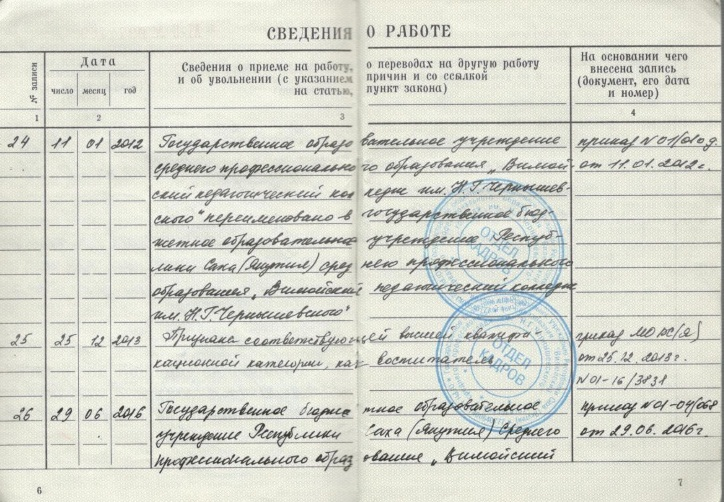 СВЕДЕНИЯ О РАБОТЕ
№ записи
Дата
число месяц год
Сведения о приеме на работу, о переводах на другую работу
и об увольнении (с указанием причин и со ссылкой
на статью, пункт закона)
На основании чего
внесена запись
(документ, его дата
и номер)
1 2 3 4
24 11 01 2012 Государственное образовательное учреждение приказ N 01/010 д.
среднего профессионального образования „Вилюй- от 11.01.2012 г.
ский педагогический колледж им. Н.Г. Чернышев-
ского" переименовано в государственное бюд-
жетное образовательное учреждение Респуб-
лики Саха (Якутия) среднего профессионального
образования „Вилюйский педагогический колледж
им. Н.Г. Чернышевского"
25 25 12 2013 Признана соответствующей высшей квалифи- приказ МО РС(Я)
кационной категории, как воспитателя от 25.12.2013 г.
N 01-16/3838
26 29 06 2016 Государственное бюджетное образовательное приказ N 01-04/068
учреждение Республики Саха (Якутия) среднего от 29.06.2016 г.
профессионального образования „Вилюйский
ОТДЕЛ
КАДРОВ
ОТДЕЛ
КАДРОВ
6
7